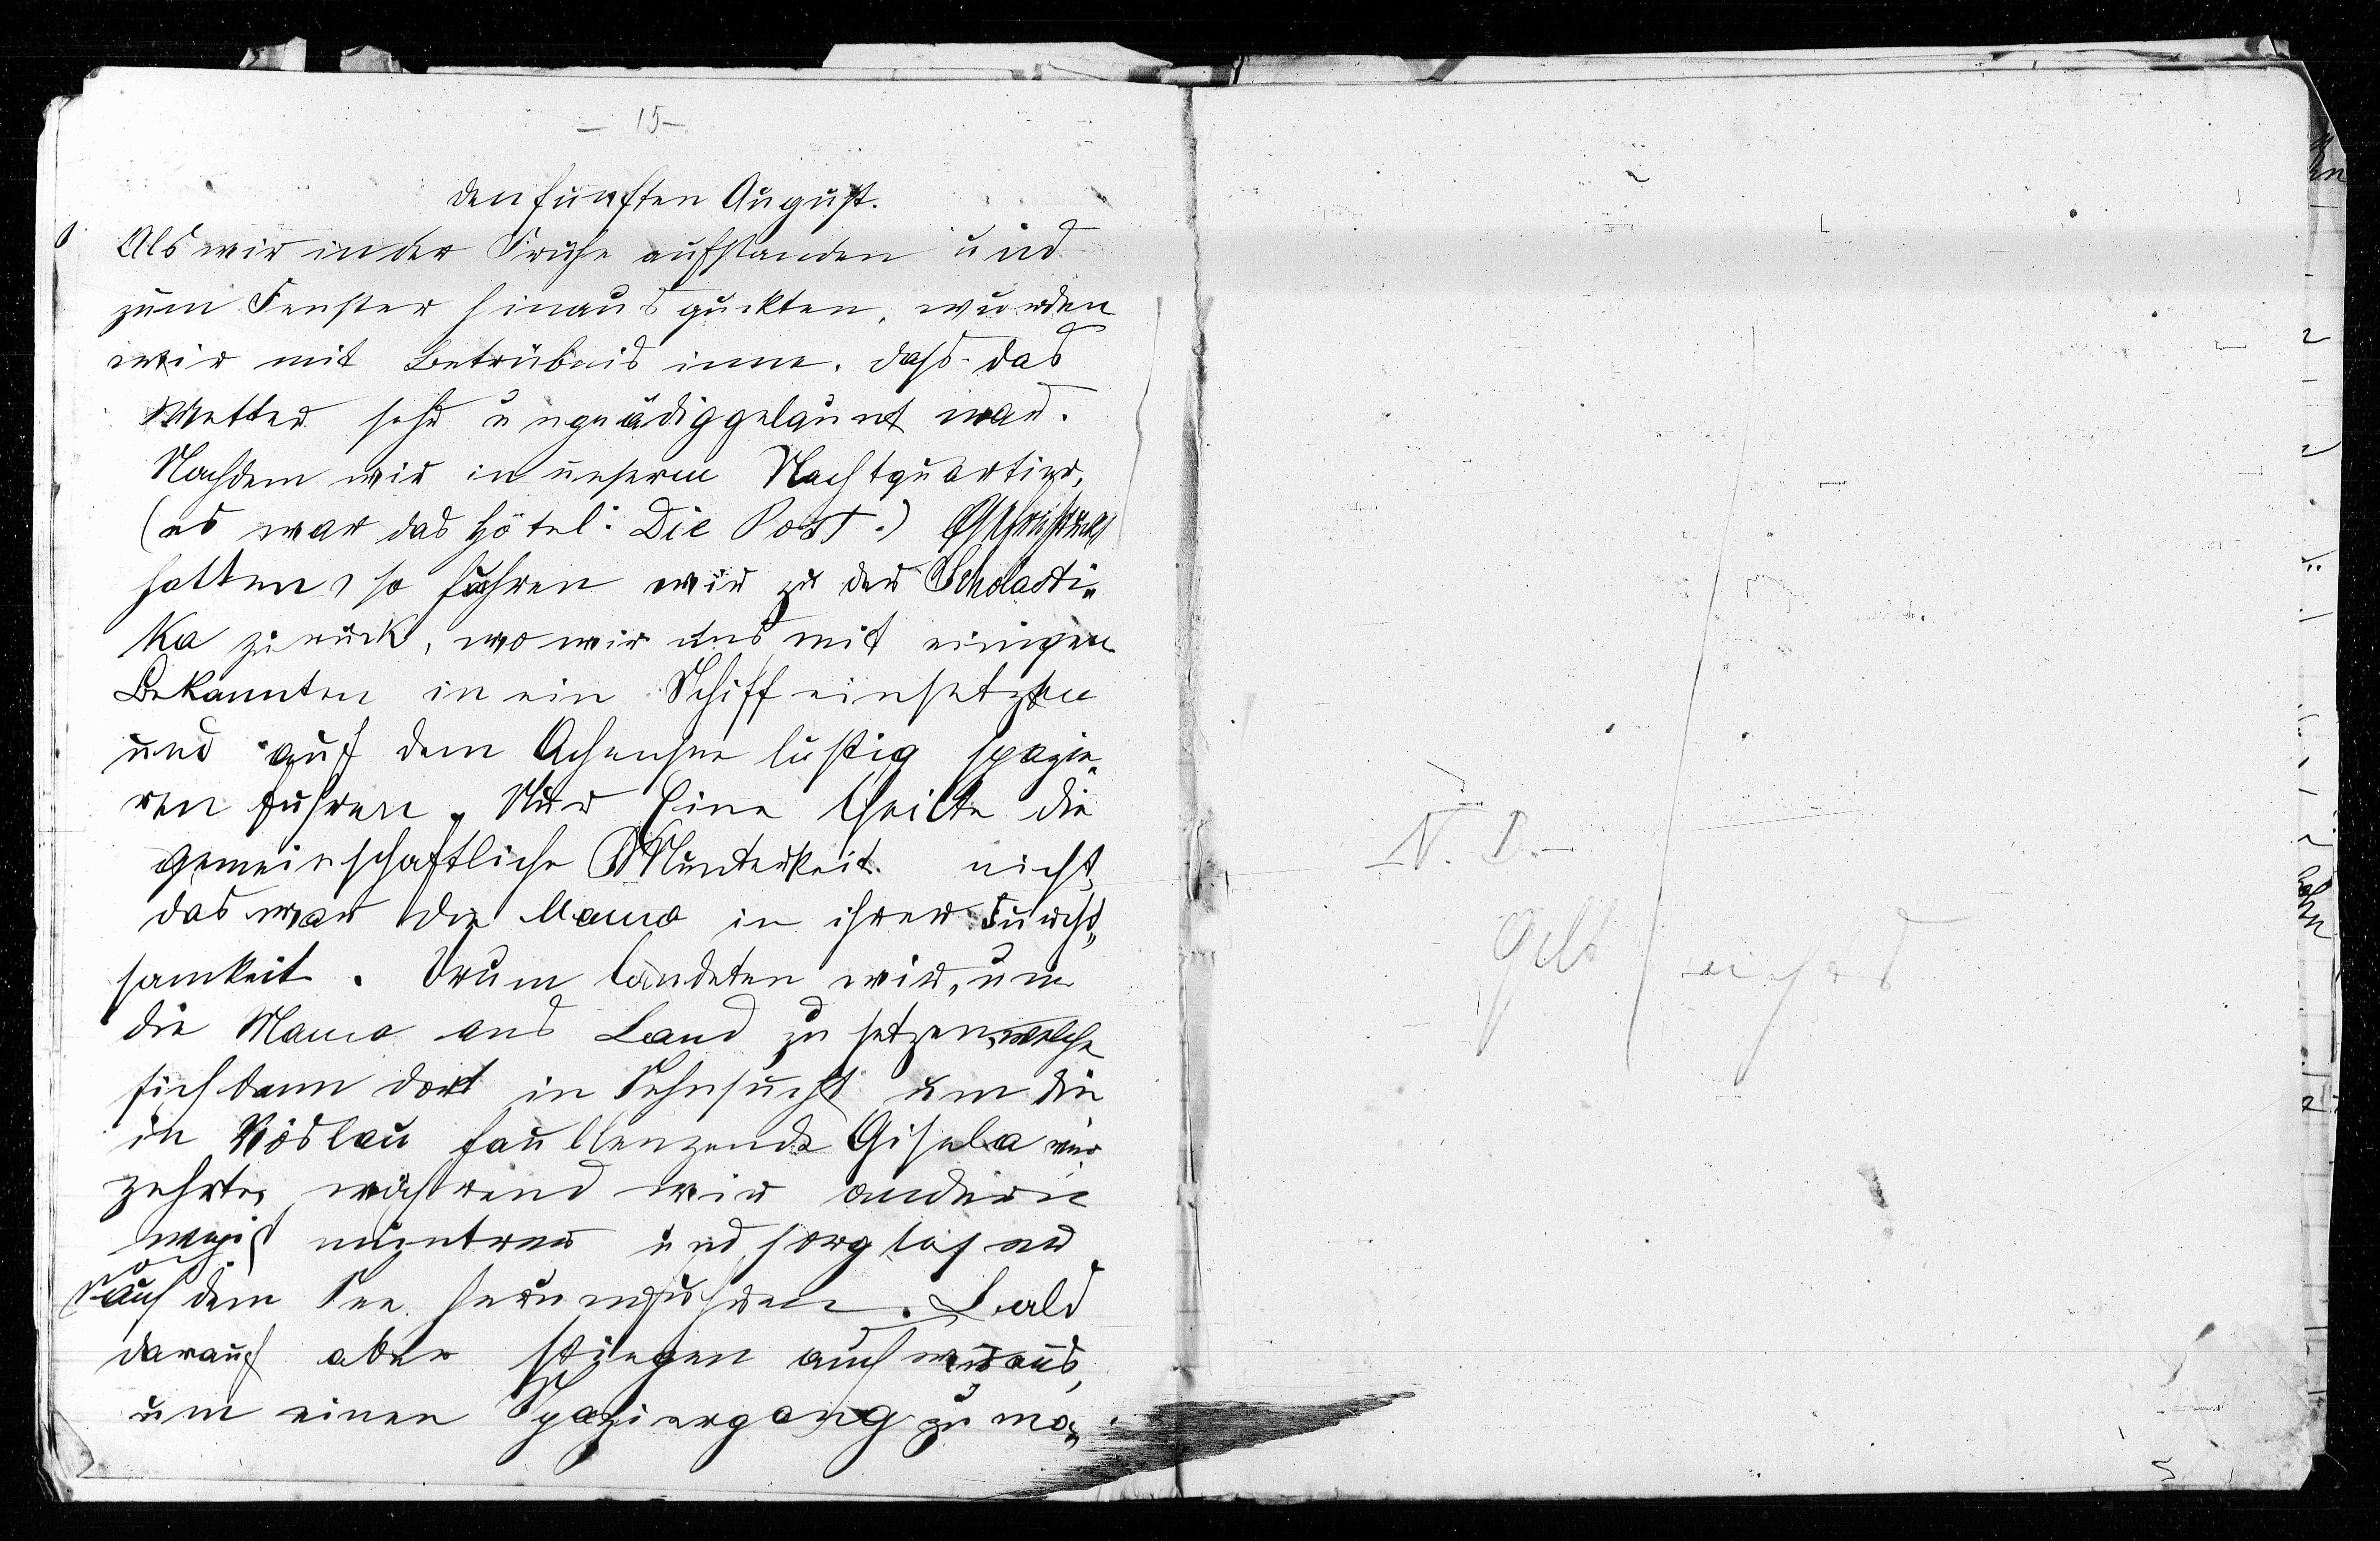 – 15 –
den fünften August.
Als wir in der Frühe aufstanden und
zum Fenster hinaus guckten, wurden
wir mit Betrübnis inne, daß das
Wetter sehr ungnädig gelaunt war.
Nachdem wir in unserm Nachtquartier,
(es war das Hôtel: Die Post.) gefrühstückt
hatten, so fuhren wir zu der Scholasti„
ka zurück, wo wir uns mit einigen
Bekannten in ein Schiff einsetzten
und auf dem Achensee lustig spazie„
ren fuhren. Nur Eine theilte die
gemeinschaftliche Munterkeit nicht,
das war die Mama in ihrer Furcht„
samkeit. Drum landeten wir, um
die Mama ans Land zu setzen, welche
sich dann dort in Sehnsucht um die
in Vöslau faullenzende Gisela ver
zehrte, während wir andern
munter und sorglos
auf dem See herumfuhren. Bald
darauf aber stiegen auch wir aus,
um einen Spaziergang zu ma„
N. B. –
Gilt nichts